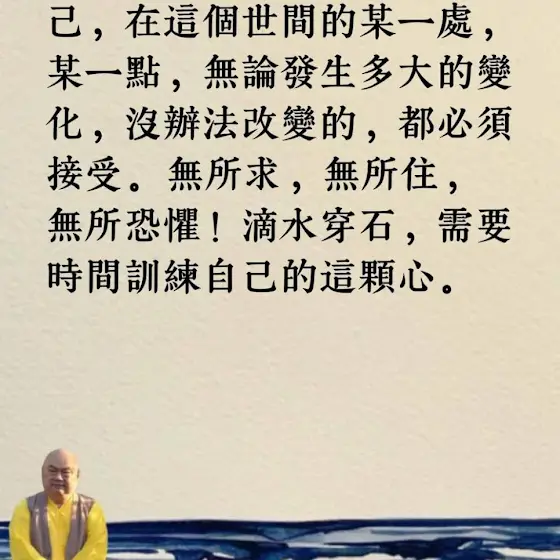 己，在這個世間的某一處，
某一點，無論發生多大的變
化，沒辦法改變的，都必須
接受。無所求，無所住，
無所恐懼！滴水穿石，需要
時間訓練自己的這顆心。